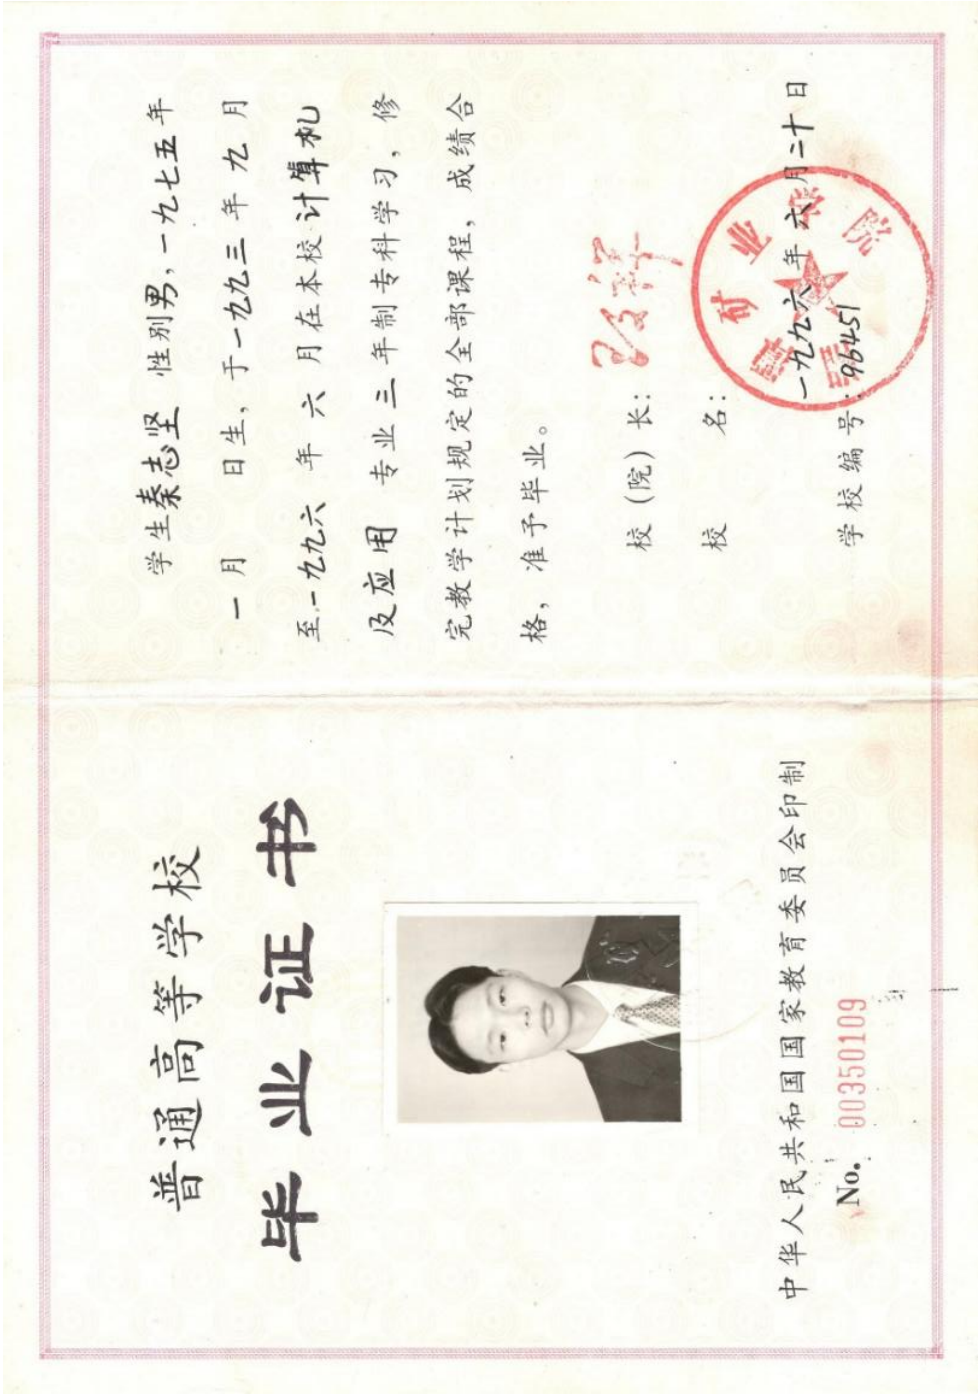 普通高等学校
毕业证书
中华人民共和国国家教育委员会印制
No. 00350109
学生秦志坚 性别男,一九七五年
一月 日生,于一九九三年九月
至一九九六年六月在本校计算机
及应用 专业三年制专科学习,修
完教学计划规定的全部课程,成绩合
格,准予毕业。
校(院)长:
校 名:
矿业学院
一九九六年六月二十日
学校编号:96451